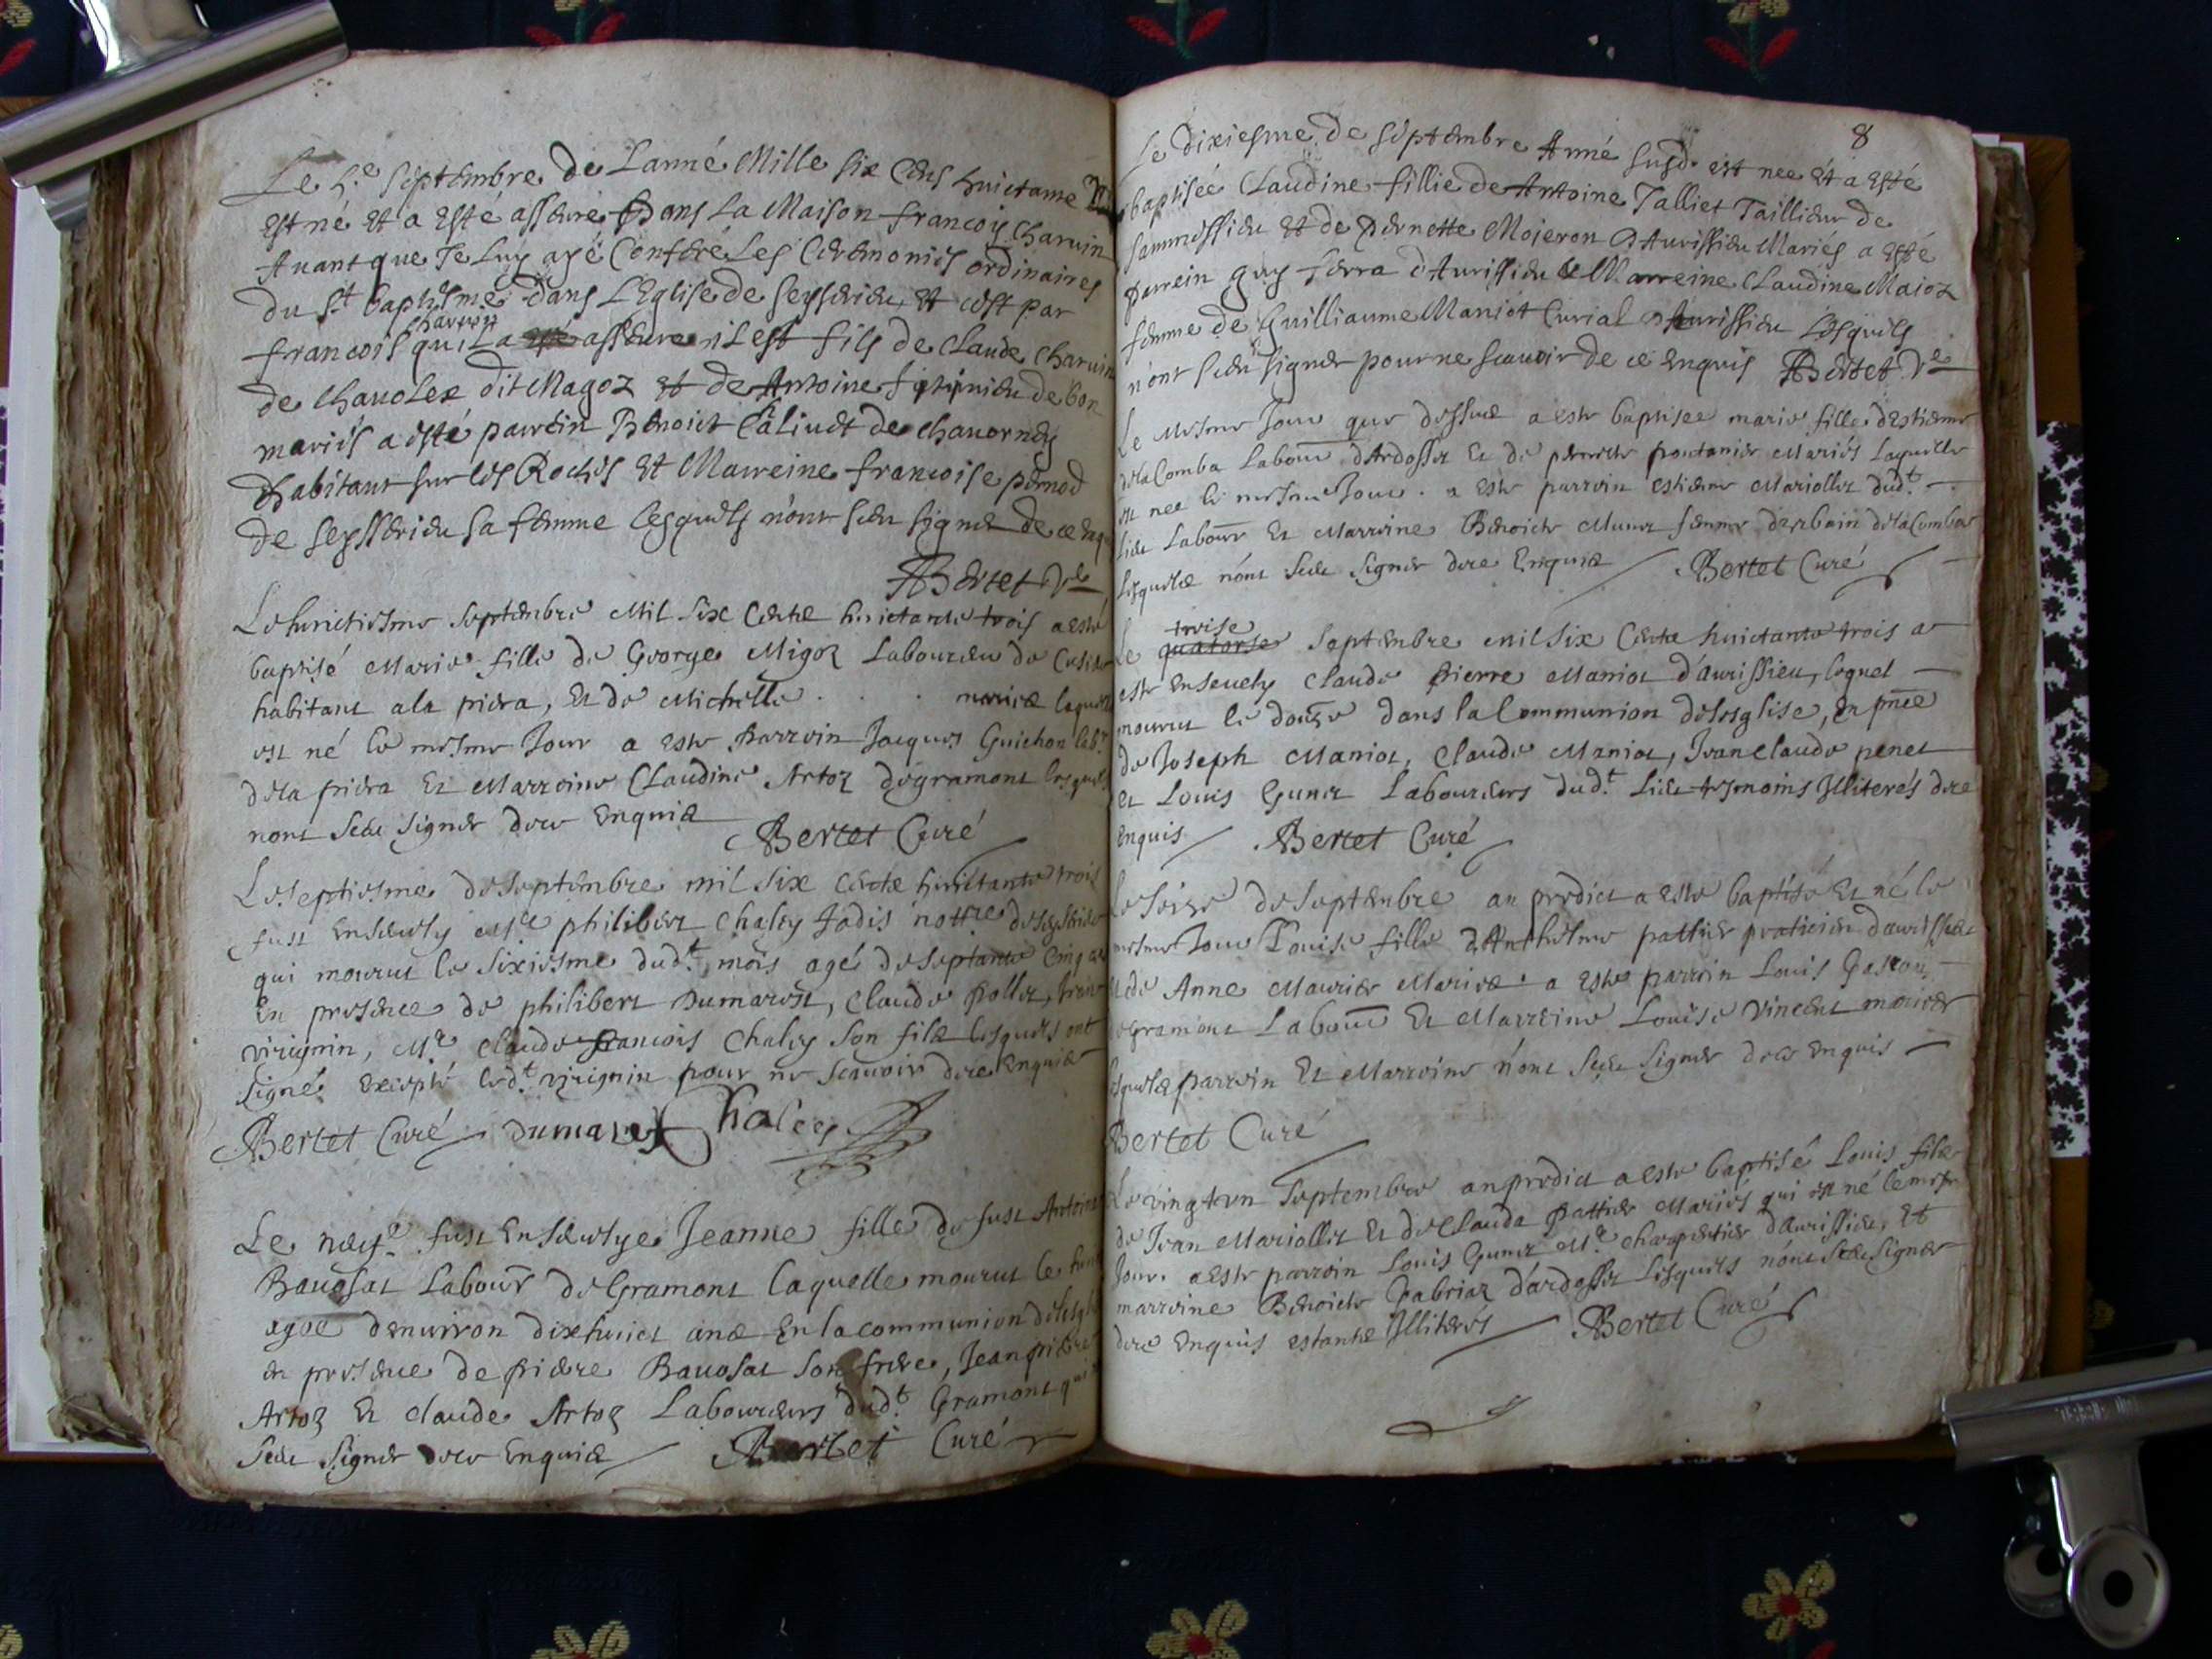 Le 5.e Septembre de Lanné Mille Six Cens huictante
Est né et a Esté asseuré Dans La Maison francois charuin
Auant que Je Luy ayé Conferé Les Ceremonies ordinaires
du St baptesme dans LEglise de Seysserieu et cest par
charuin
francois qui La asseure il est fils de claude charuin
de chauolex dit Magoz et de Antoine de bon
mariés a esté parrein Benoict Caliuet de chauorney
Habitant sur les Roches et Marreine francoise pernod
de Seysserieu Sa femme lesquels n'ont sceu signer de ce enq
Bertet
Le huictiesme Septembre Mil Six Cents huictante trois a esté
baptisé Marie fille de George Migoz Laboureur de
habitant a la piera, Et de Michelle . . . mariés laquelle
est né le mesme Jour a este Parrein Jacques Guichon labr
de la piera Et Marreine Claudine Artoz de gramont lesquels
nont Sceu Signer de ce Enquis
Bertet Curé
Le septiesme de Septembre mil Six Cents huictante trois
fust Ensevely Mre philibert Chaley Jadis nottre de Seysserieu
qui mourut le Sixiesme dudt mois agé de Septante Cinq ans
En presence de philibert Dumarest, Claude Pollet,
virignin, Mre Claude francois Chaley Son fils lesquels ont
Signé Excepté ledt virignin pour ne Scavoir de ce Enquis
Bertet Curé Dumarest Chaley
Le neufe fust Ensevelye Jeanne fille de fust Antoine
Bauosat Labour de Gramont laquelle mourut le huict
agee denuiron dixhuict ans En la communion de lesglise
en presence de piere Bauosat Son frere, Jean piere
Artoz Et claude Artoz Laboureurs dudt Gramont qui
Sceu Signer de ce Enquis Bertet Curé
8
Le Dixiesme de Septembre Anné susd. est nee et a Esté
baptiseé Claudine fillie de Antoine Talliet Taillieur de
Sammessieu et de Pernette Mojeron D'Aurissieu Mariés a esté
parrein guy ferra d'Aurissieu & Marreine Claudine Maioz
femme de Guilliaume Maniot Curial d'Aurissieu Lesquels
n'ont sceu signer pour ne scauoir de ce enquis Bertet
Le Mesme Jour que dessus a este baptisee marie fille destienne
de la Comba Labour d'Ardosset Et de pernette pontanier Mariés Laquelle
est nee le mesme Jour. a este parrein estienne Mariollet dudt
lieu Labour Et Marreine Benoicte Munet femme durbain de la Comba
lesquels n'ont Sceu Signer de ce Enquis Bertet Curé
treise
Le quatorse Septembre mil six Cents huictante trois a
este Ensevely Claude Pierre Maniot d'aurissieu, lequel
mourut le douze dans la Communion de lesglise, en pnce
de Joseph Maniot, Claude Maniot, Jean claude penet
et Louis Gunet Laboureurs dudt lieu tesmoins Illiterés de ce
enquis Bertet Curé
Le Seize de Septembre an predict a este baptisé Et né le
mesme Jour Louise fille d'Anthelme pattier praticien daurissieu
et de Anne Maurier Mariés. a este parrein Louis Gascon
de gramont Labour Et Marreine Louise Vincent
lesquels parrein Et Marreine n'ont Sceu Signer de ce enquis
Bertet Curé
Le vingt un Septembre an predict a este baptisé Louis fils
de Jean Mariollet Et de Clauda Pattier Mariés qui est né le mesme
Jour. a este parrein Louis Gunet Mre charpentier d'aurissieu, Et
marreine Benoicte Fabriaz d'ardosset lesquels n'ont Sceu Signer
de ce enquis estants Illiterés Bertet Curé